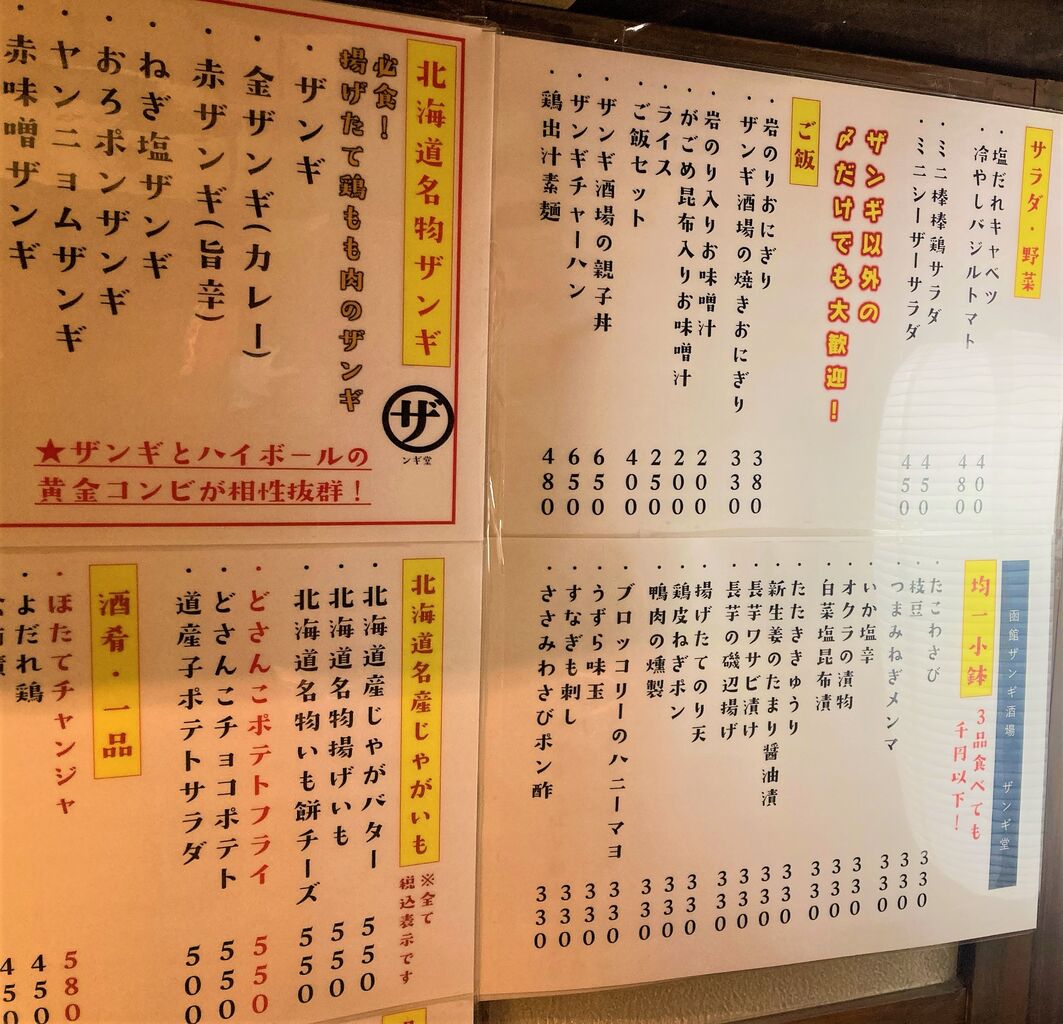 サラダ・野菜
・塩だれキャベツ 400
・冷やしバジルトマト 480
・ミニ棒棒鶏サラダ 450
・ミニシーザーサラダ 450
ザンギ以外の
〆だけでも大歓迎！
ご飯
・岩のりおにぎり 380
・ザンギ酒場の焼きおにぎり 330
・岩のり入りお味噌汁 200
・がごめ昆布入りお味噌汁 200
・ライス 250
・ご飯セット 400
・ザンギ酒場の親子丼 650
・ザンギチャーハン 650
・鶏出汁素麺 480
北海道名物ザンギ
必食！
揚げたて鶏もも肉のザンギ
・ザンギ
・金ザンギ(カレー)
・赤ザンギ(旨辛)
・ねぎ塩ザンギ
・おろポンザンギ
・ヤンニョムザンギ
・赤味噌ザンギ
ザ
ンギ堂
★ザンギとハイボールの
黄金コンビが相性抜群！
函館ザンギ酒場 ザンギ堂
均一小鉢
3品食べても
千円以下！
・たこわさび 330
・枝豆 330
・つまみねぎメンマ 330
・いか塩辛 330
・オクラの漬物 330
・白菜塩昆布漬 330
・たたききゅうり 330
・新生姜のたまり醤油漬 330
・長芋ワサビ漬け 330
・長芋の磯辺揚げ 330
・揚げたてのり天 330
・鶏皮ねぎポン 330
・鴨肉の燻製 330
・ブロッコリーのハニーマヨ 330
・うずら味玉 330
・すなぎも刺し 330
・ささみわさびポン酢 330
北海道名産じゃがいも
※全て
税込表示です
・北海道産じゃがバター 550
・北海道名物揚げいも 550
・北海道名物いも餅チーズ 550
・どさんこポテトフライ 550
・どさんこチョコポテト 550
・道産子ポテトサラダ 500
酒肴・一品
・ほたてチャンジャ 580
・よだれ鶏 450
450